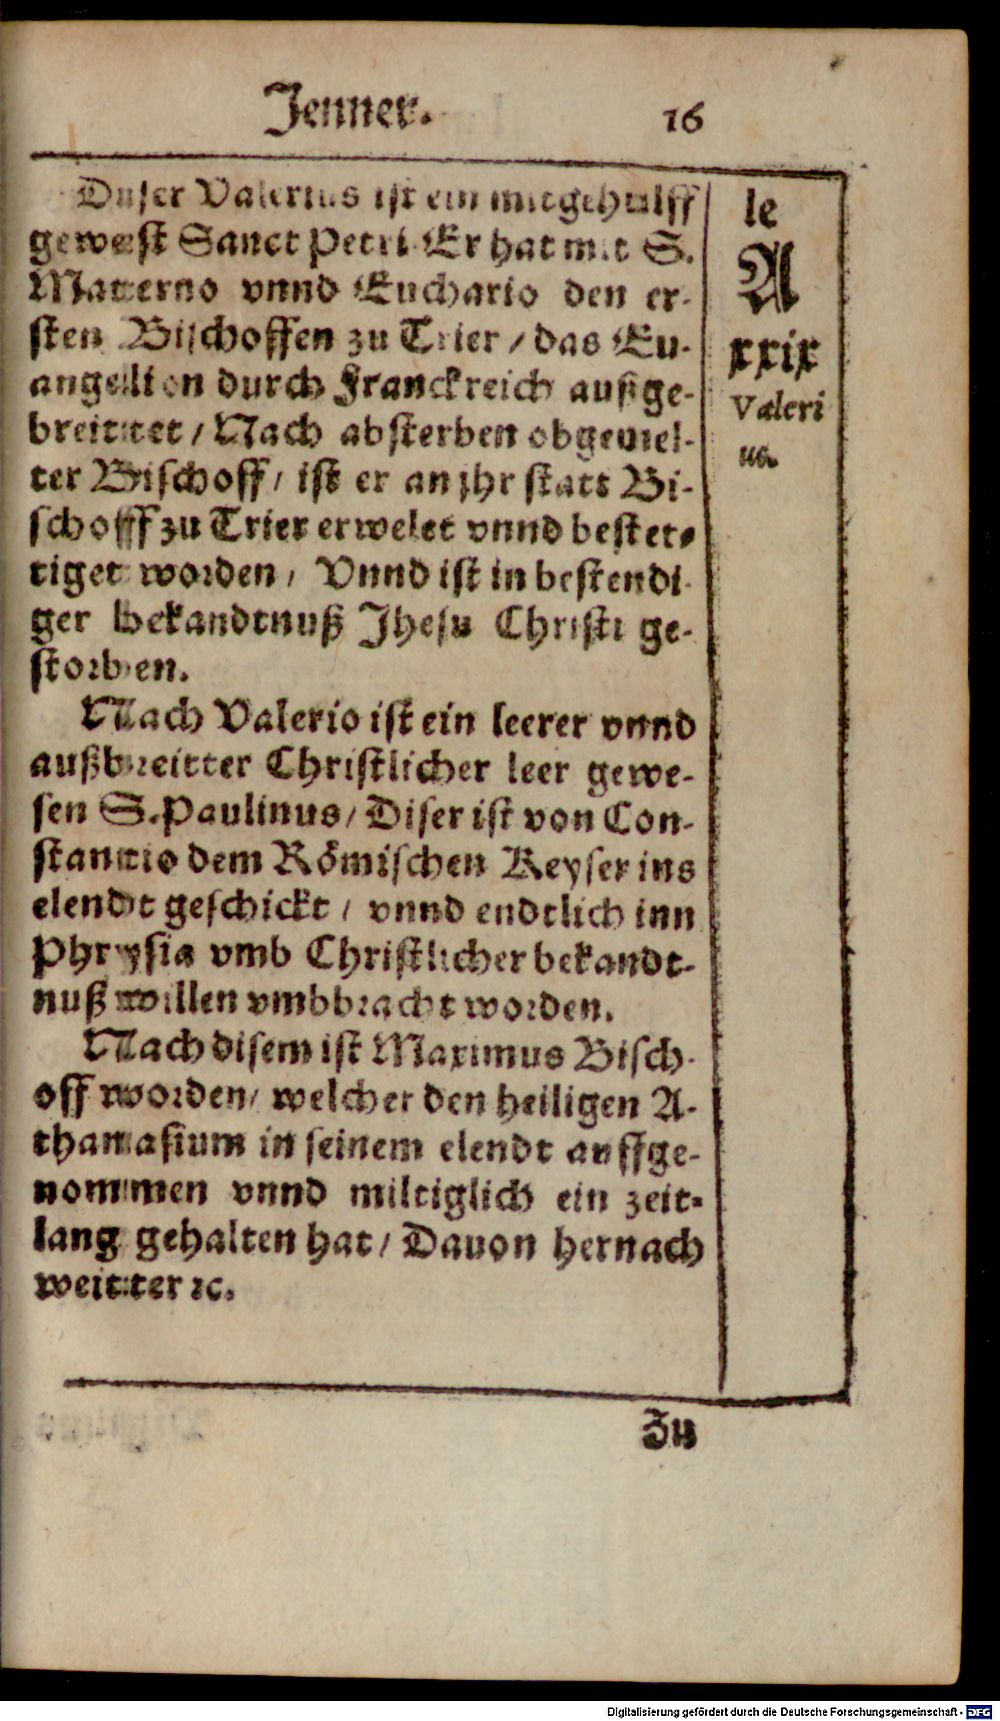 Jenner.
16
Diser Valerius ist ein mitgehülff
gewest Sanct Petri. Er hat mit S.
Materno vnnd Euchario den er-
sten Bischoffen zu Trier / das Eu-
angelion durch Franckreich außge-
breittet / Nach absterben obgemel-
ter Bischoff / ist er an jhr statt Bi-
schoff zu Trier erwelet vnnd bestet-
tiget worden / Vnnd ist in bestendi-
ger bekandtnuß Jhesu Christi ge-
storben.
Nach Valerio ist ein leerer vnnd
außbreitter Christlicher leer gewe-
sen S. Paulinus / Diser ist von Con-
stantio dem Römischen Keyser ins
elendt geschickt / vnnd endtlich inn
Phrysia vmb Christlicher bekandt-
nuß willen vmbbracht worden.
Nach disem ist Maximus Bisch-
off worden / welcher den heiligen A-
thanasium in seinem elendt auffge-
nommen vnnd miltiglich ein zeit-
lang gehalten hat / Dauon hernach
weitter ꝛc.
le
A
xxix
Valeri
us.
Zu
Digitalisierung gefördert durch die Deutsche Forschungsgemeinschaft - DFG